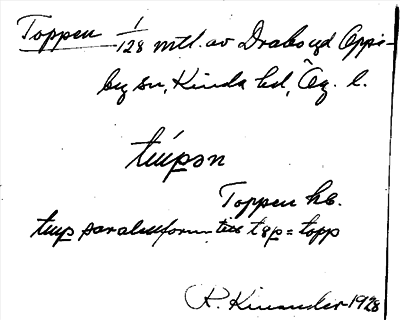 Toppen 1/128 mtl. av Drabsryd Oppe-
by sn, Kinda hd, Ög. l.
Toppen hs.
parallellform till = topp
R. Kinander 1928